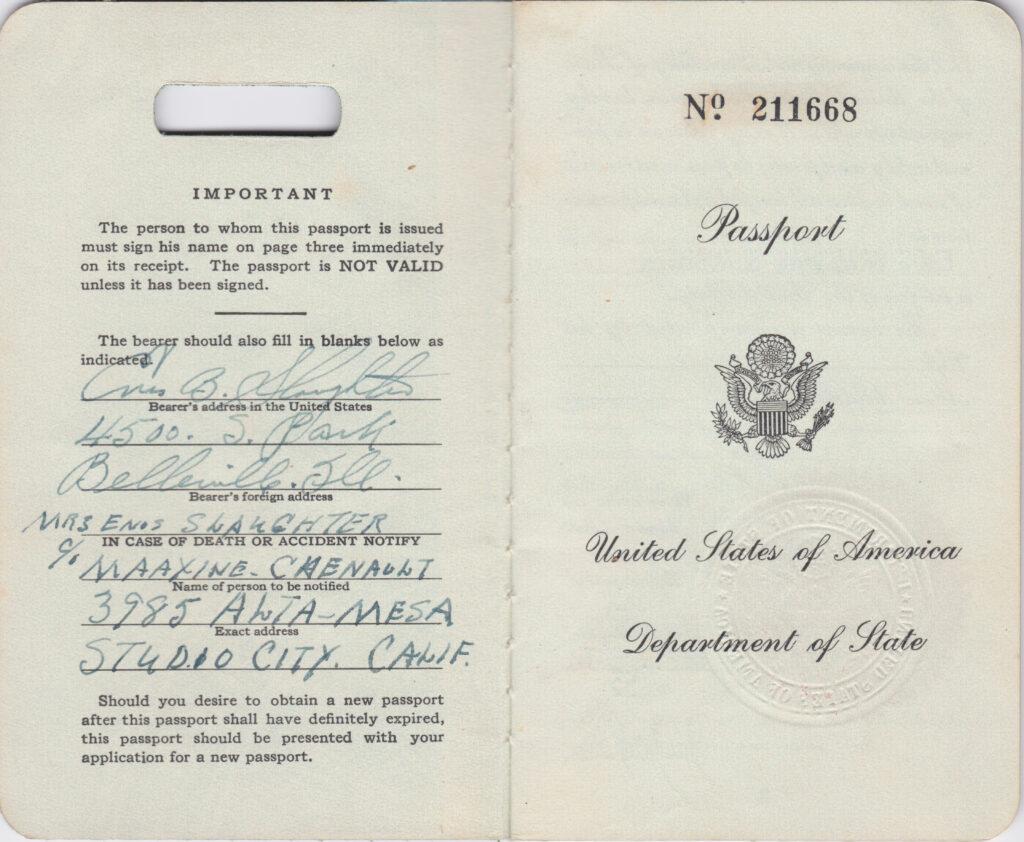 IMPORTANT
The person to whom this passport is issued
must sign his name on page three immediately
on its receipt. The passport is NOT VALID
unless it has been signed.
The bearer should also fill in blanks below as
indicated.
Enos B. Slaughter
Bearer's address in the United States
4500. S. Park
Belleville. Ill.
Bearer's foreign address
MRS ENOS SLAUGHTER
IN CASE OF DEATH OR ACCIDENT NOTIFY
c/o MAAXINE-CHENAULT
Name of person to be notified
3985 ALTA-MESA
Exact address
STUDIO CITY. CALIF.
Should you desire to obtain a new passport
after this passport shall have definitely expired,
this passport should be presented with your
application for a new passport.
Nº 211668
Passport
United States of America
Department of State